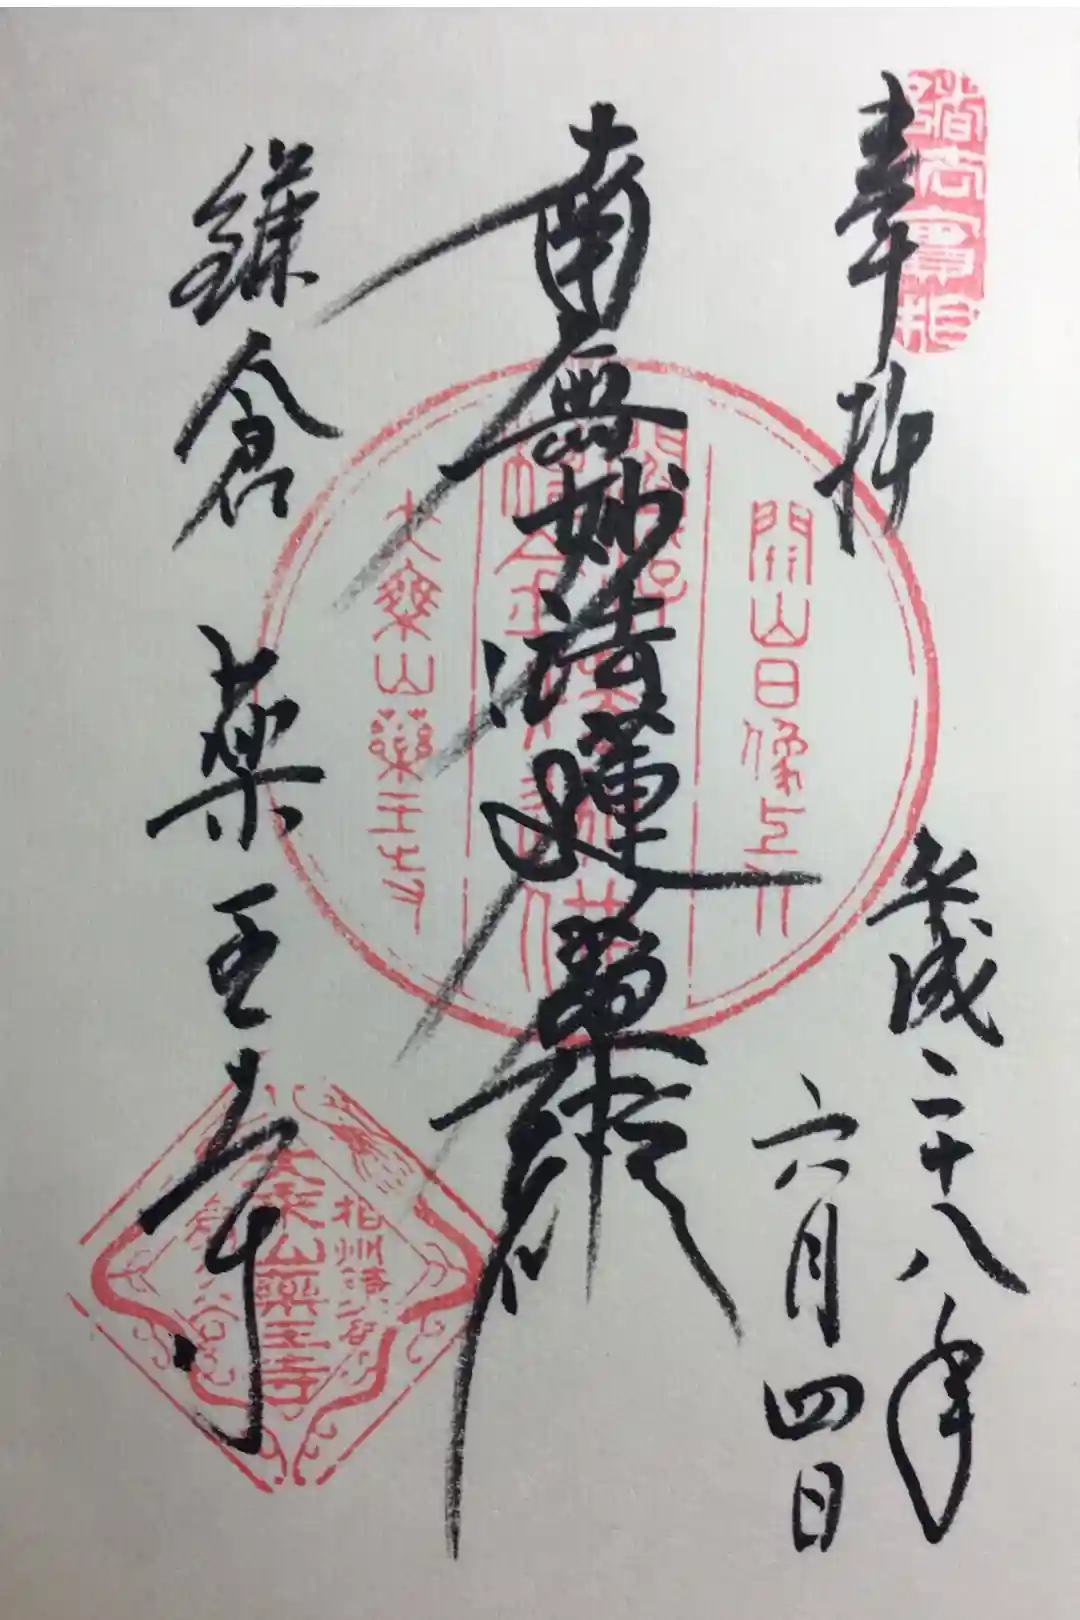 奉拝
平成二十八年
六月四日
南無妙法蓮華経
鎌倉 薬王寺
開山日像上人
大乗山薬王寺
大乗山薬王寺